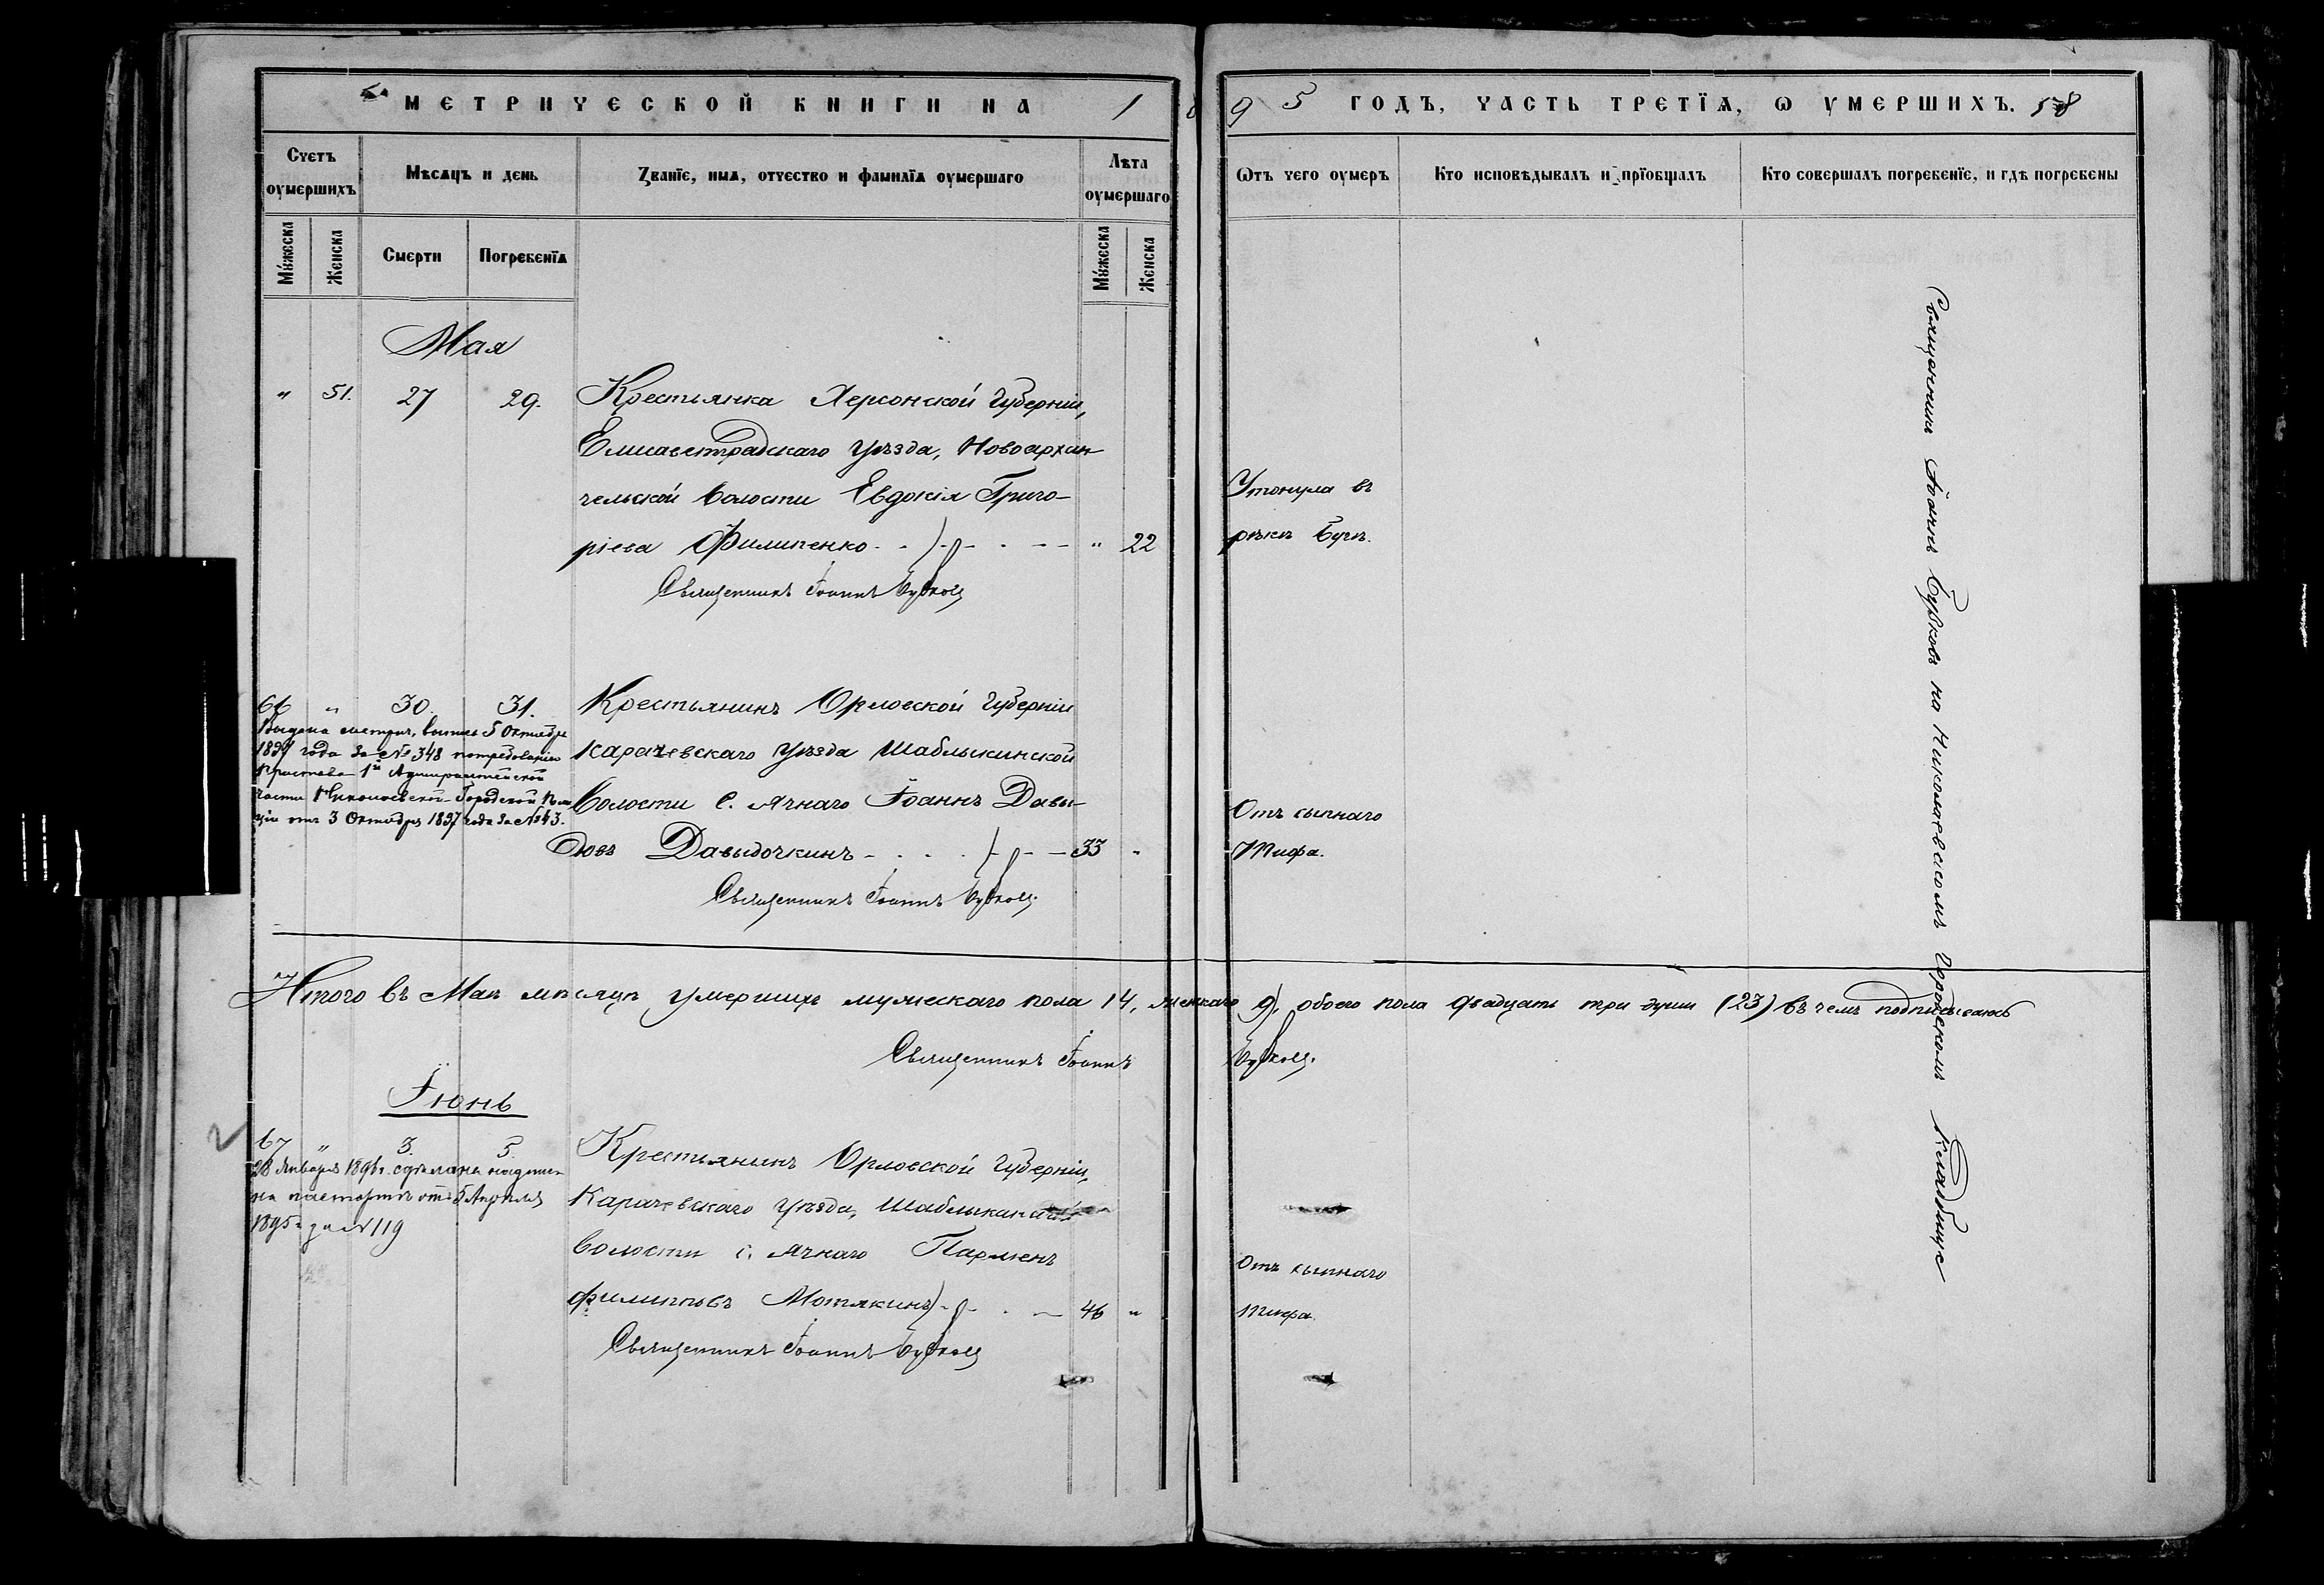 МЕТРИЧЕСКОЙ КНИГИ НА 1895 ГОДЪ, ЧАСТЬ ТРЕТІѦ, Ѡ УМЕРШИХЪ. 58
Счетъ оумершихъ
Мѣсяцъ и день
Званїе, имѧ, отчество и фамилїѧ оумершаго
Лѣта оумершаго
Ѿтъ чего оумеръ
Кто исповѣдывалъ и прїобщалъ
Кто совершалъ погребенїе, и гдѣ погребены
Мужеска
Женска
Смерти
Погребенїѧ
Мужеска
Женска
Мая
" 51. 27 29. Крестьянка Херсонской Губерніи,
Елисаветградскаго Уѣзда, Новоархан-
гельской Волости Евдокія Григо-
ріева Филипенко " 22
Утонула въ
рѣкѣ Бугѣ.
Священникъ Іоаннъ Бурковъ
66 " 30. 31. Крестьянинъ Орловской Губерніи
Карачевскаго Уѣзда Шаблыкинской
Волости с. Ячнаго Іоаннъ Давы-
довъ Давыдочкинъ 33 "
Отъ сыпнаго
Тифа.
Священникъ Іоаннъ Бурковъ
Выдана метрич. выпись 5 Октября
1897 года за № 348 по требованію
Пристава 1й Адмиралтейской
части Николаевской Городской Поли
ціи отъ 3 Октября 1897 года за №
Итого въ Маѣ мѣсяцѣ умершихъ мужескаго пола 14, женскаго 9, обоего пола двадцать три души (23) въ чемъ подписываюсь
Священникъ Іоаннъ Бурковъ.
Іюнь
67 " 3. 5. Крестьянинъ Орловской Губерніи,
Карачевскаго Уѣзда, Шаблыканской
Волости с. Ячнаго Парменъ
Филипповъ Мотякинъ 46 "
Отъ сыпнаго
тифа.
Священникъ Іоаннъ Бурковъ
28 Января 1896 г. сдѣлана надпись
на паспортѣ отъ 5 Апрѣля
1895 г. за № 119
Священникъ Іоаннъ Бурковъ на Николаевскомъ Городскомъ Кладбище